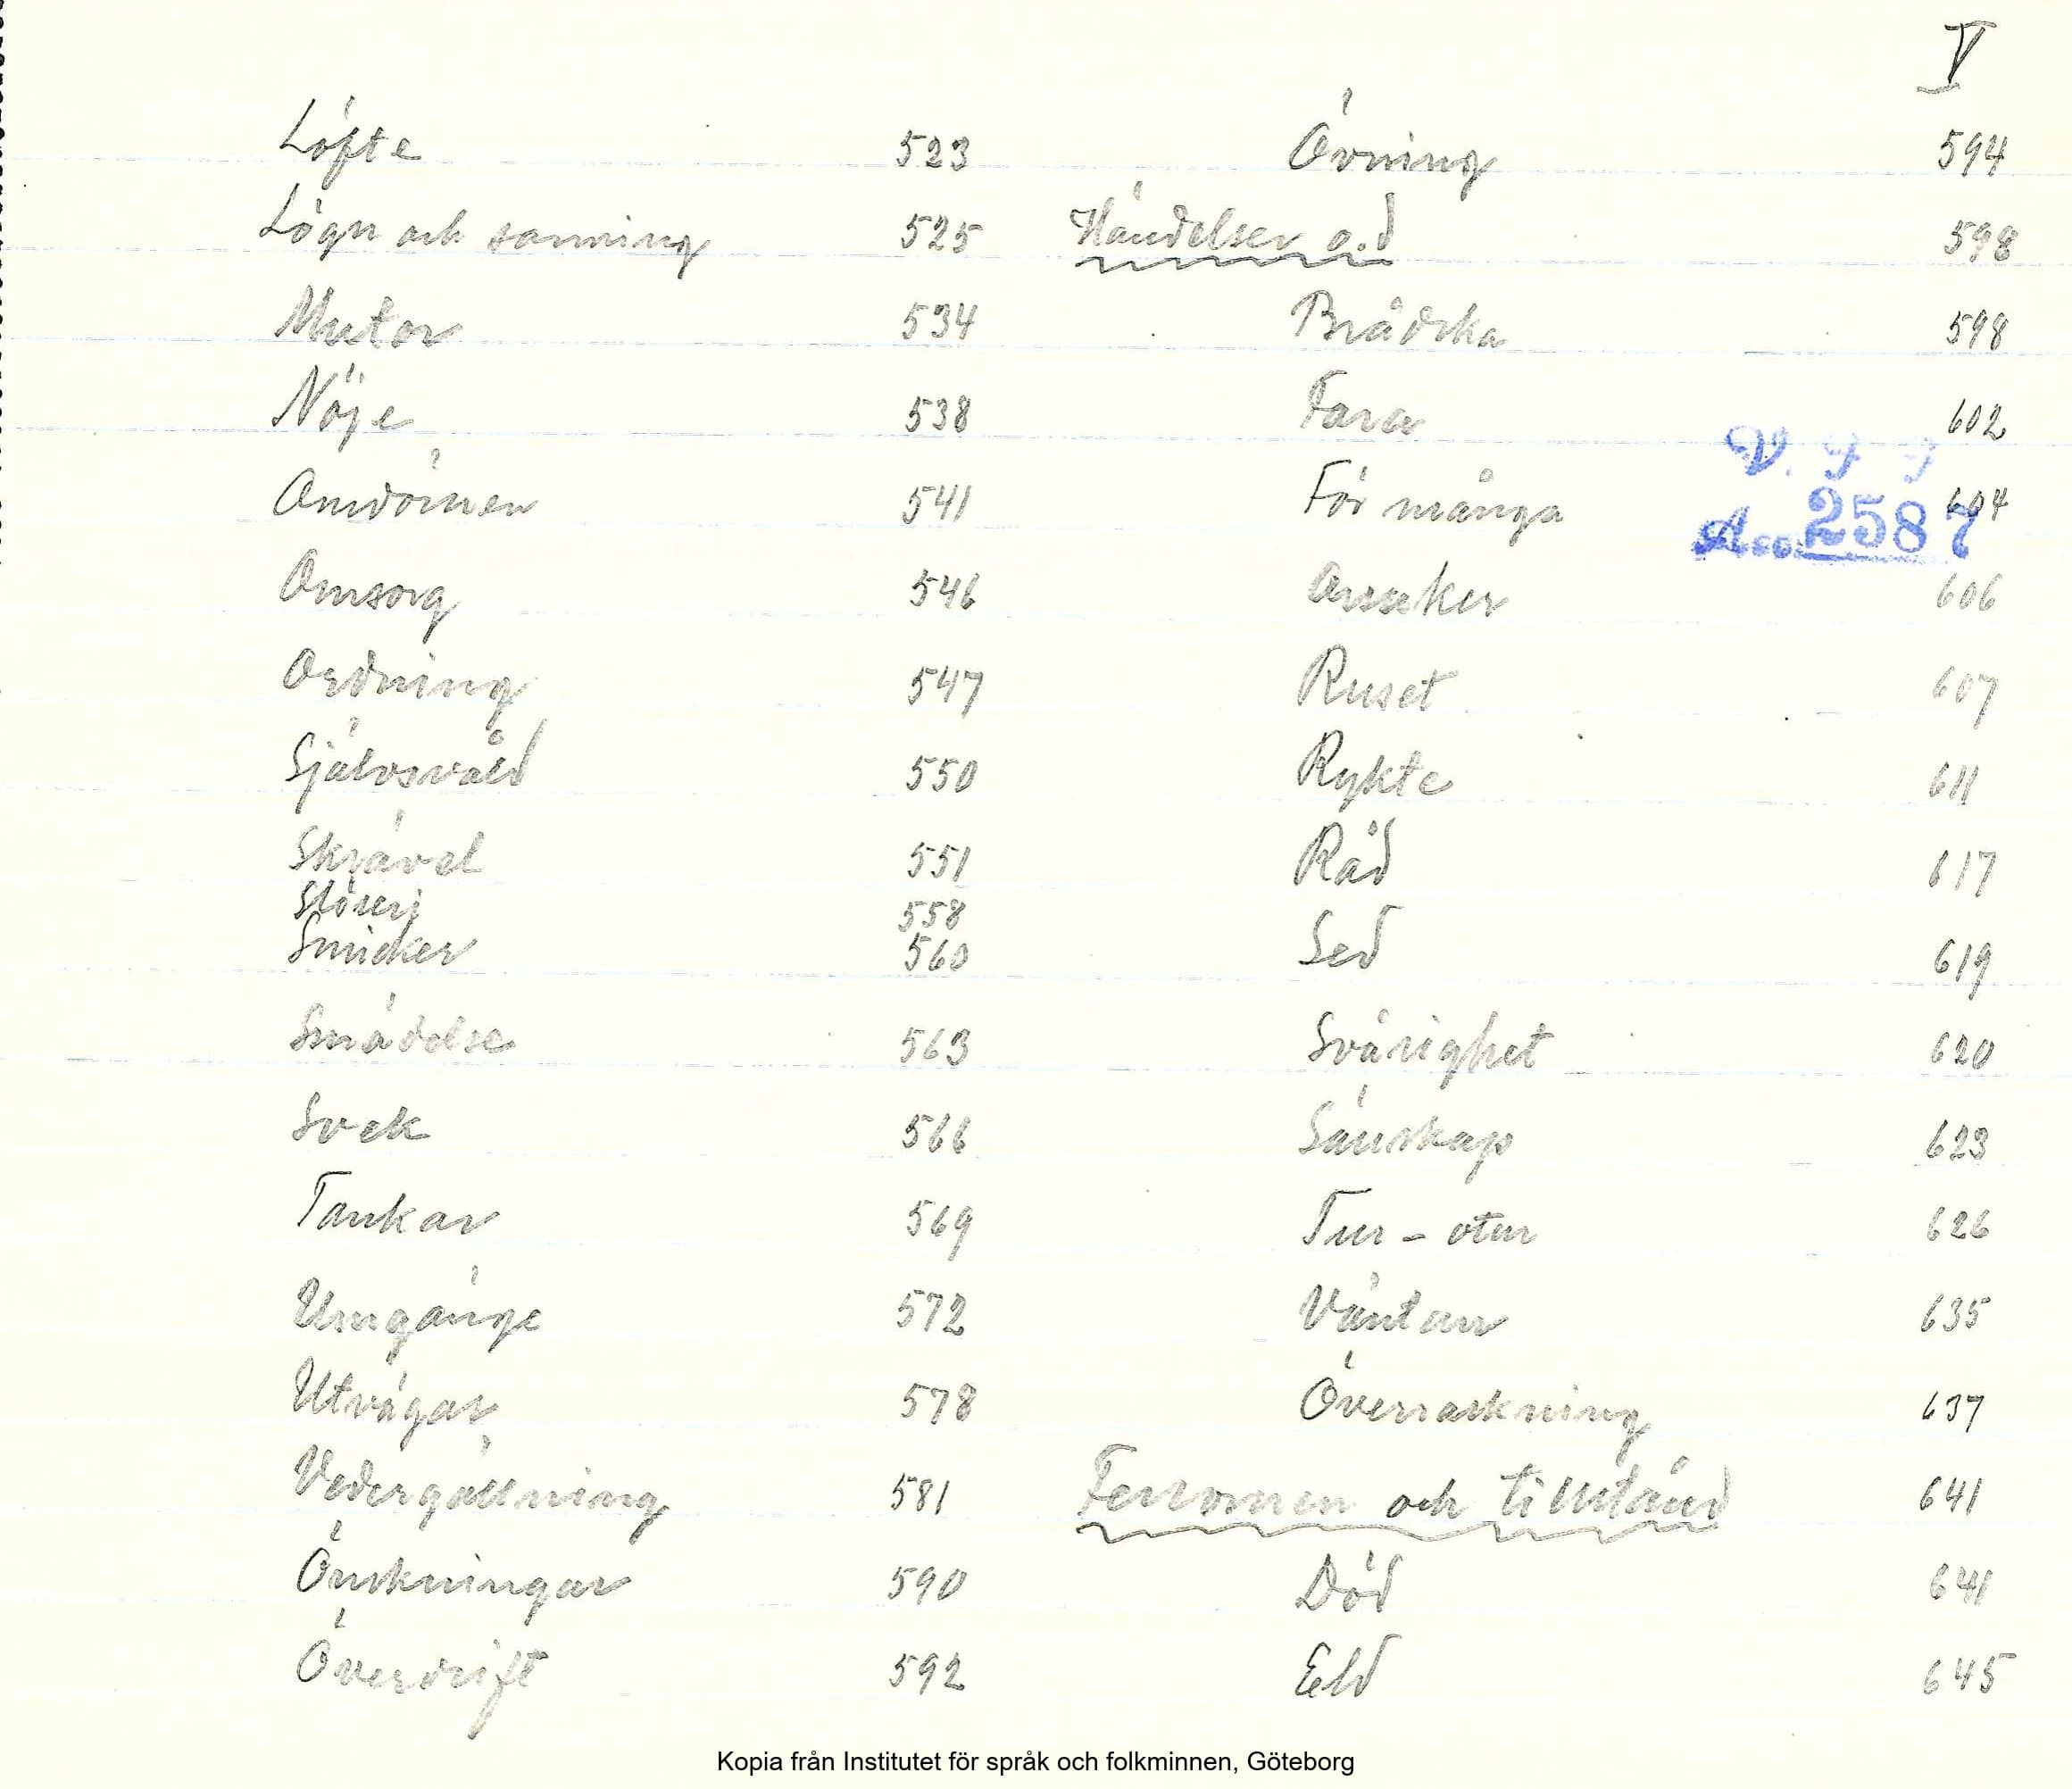 V
Löfte 523
Lögn och sanning 525
Mutor 534
Nöje 538
Omdömen 541
Omsorg 546
Ordning 547
Självsvåld 550
Skrävel 551
Slöseri 558
Smicker 560
Smädelse 563
Svek 566
Tankar 569
Umgänge 572
Utvägar 578
Vedergällning 581
Önskningar 590
Överdrift 592
Övning 594
Händelser o.d 598
Brådska 598
Fara 602
För många 604
Orsaker 606
Ruset 607
Rykte 611
Råd 617
Sed 619
Svårighet 620
Sällskap 623
Tur - otur 626
Väntan 635
Överraskning 637
Fenomen och tillstånd 641
Död 641
Eld 645
V.
Acc. 2587
Kopia från Institutet för språk och folkminnen, Göteborg